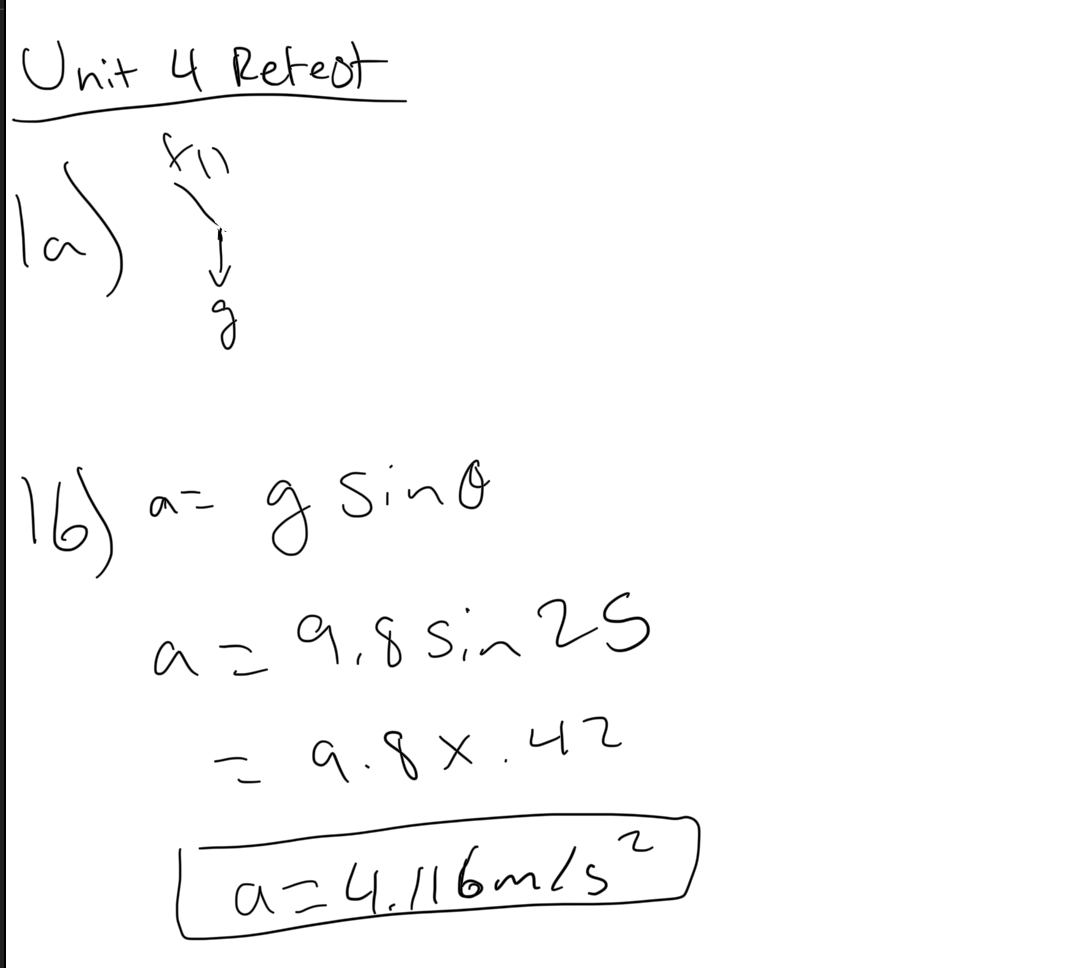 Unit 4 Retest
1a)
g
1b) a= g sinθ
a = 9.8 sin 25
= 9.8 x .42
a = 4.116 m/s²